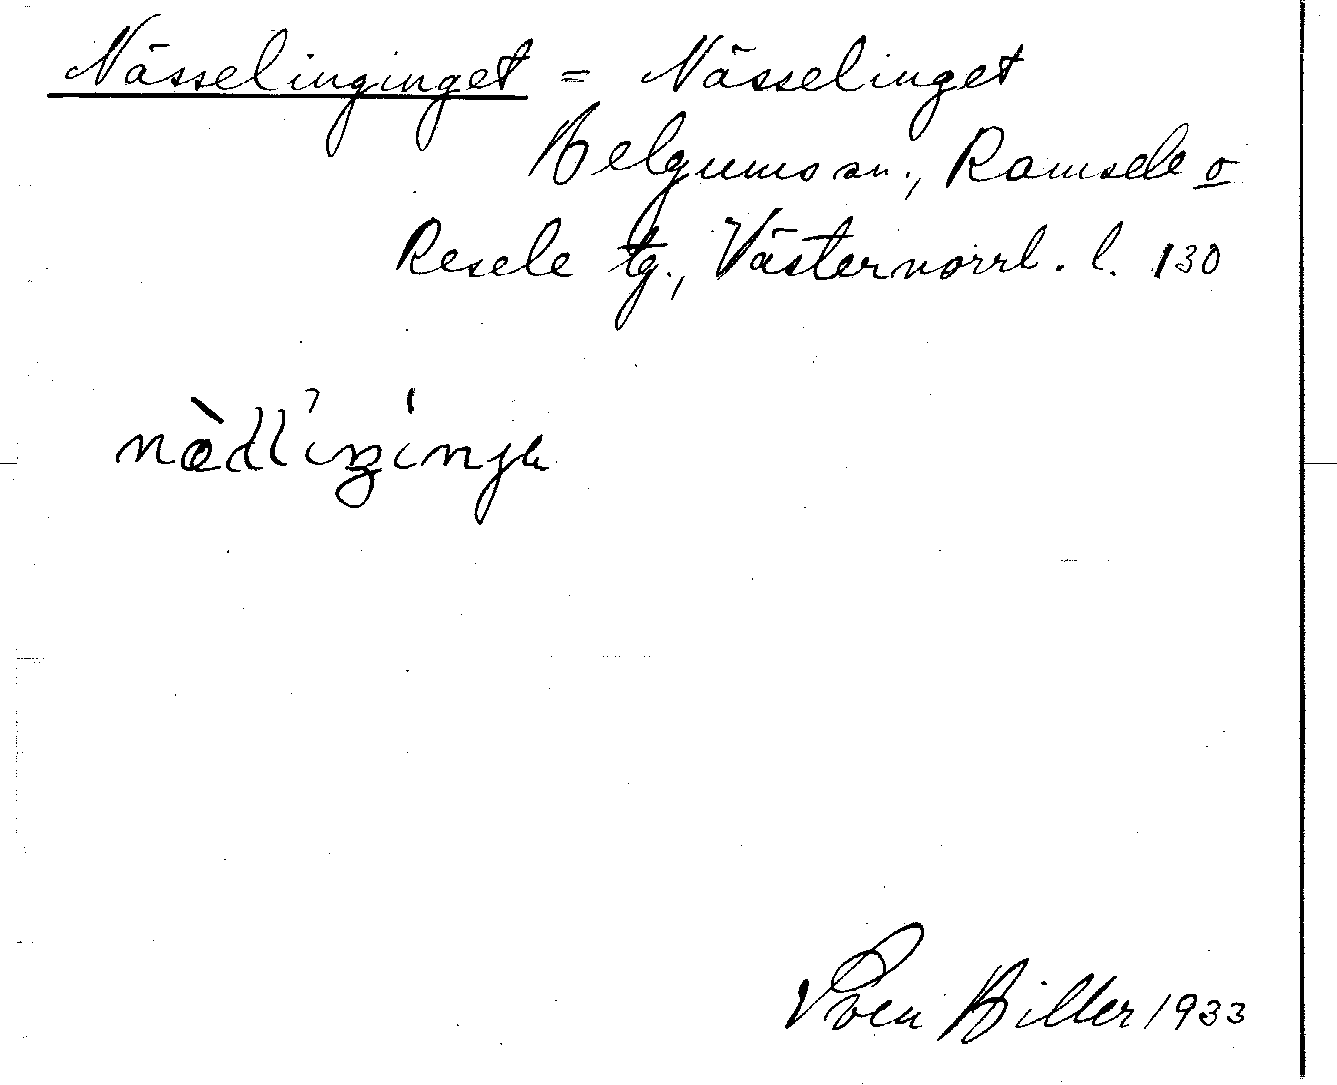 Nässelinginget = Nässelinget
Helgums sn., Ramsele o
Resele tg., Västernorrl. l. 130
Sven Hiller 1933